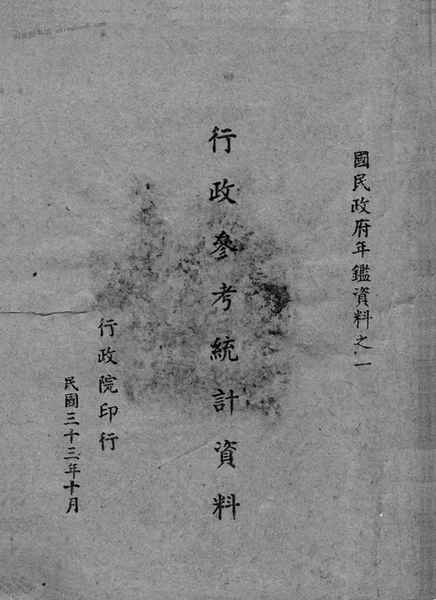 國民政府年鑑資料之一
行政參考統計資料
行政院印行
民國三十三年十月